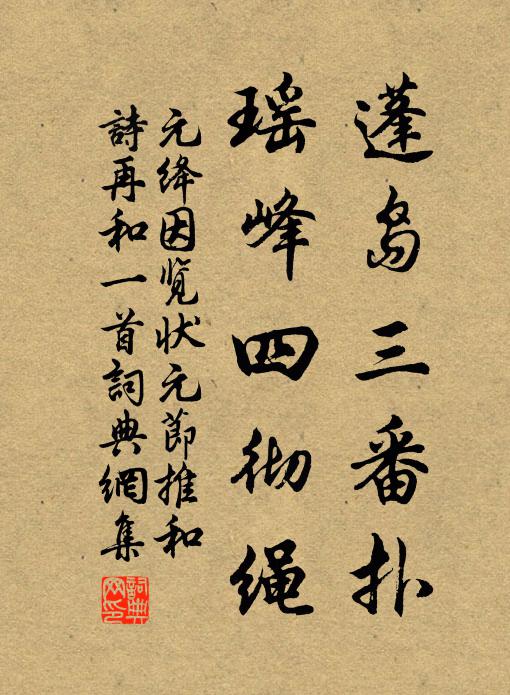 蓬岛三番扑
瑶峰四彻绳
元绛因览状元節推和
詩再和一首詞典網集
詞典网印